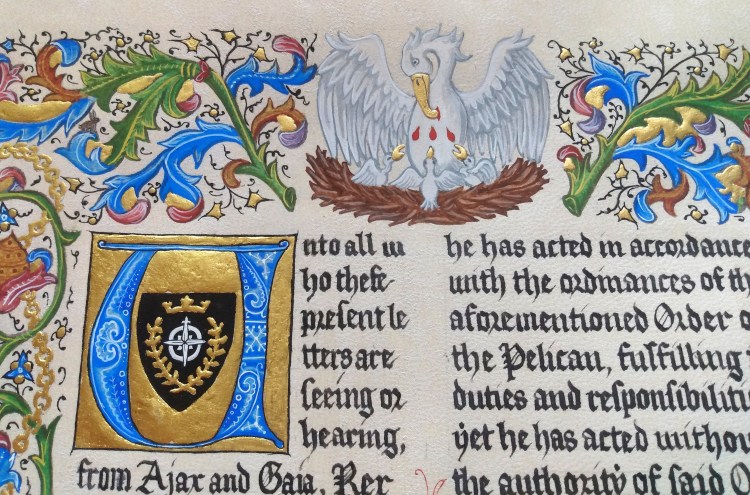 Unto all w
ho theſe
preſent le
tters are
ſeeing or
hearing,
from Ajax and Gaia, Rer
he has acted in accordance
with the ordinances of th
aforementioned Order o
the Pelican, fulfilling
duties and reſponſibiliti
yet he has acted withou
the authority of said O